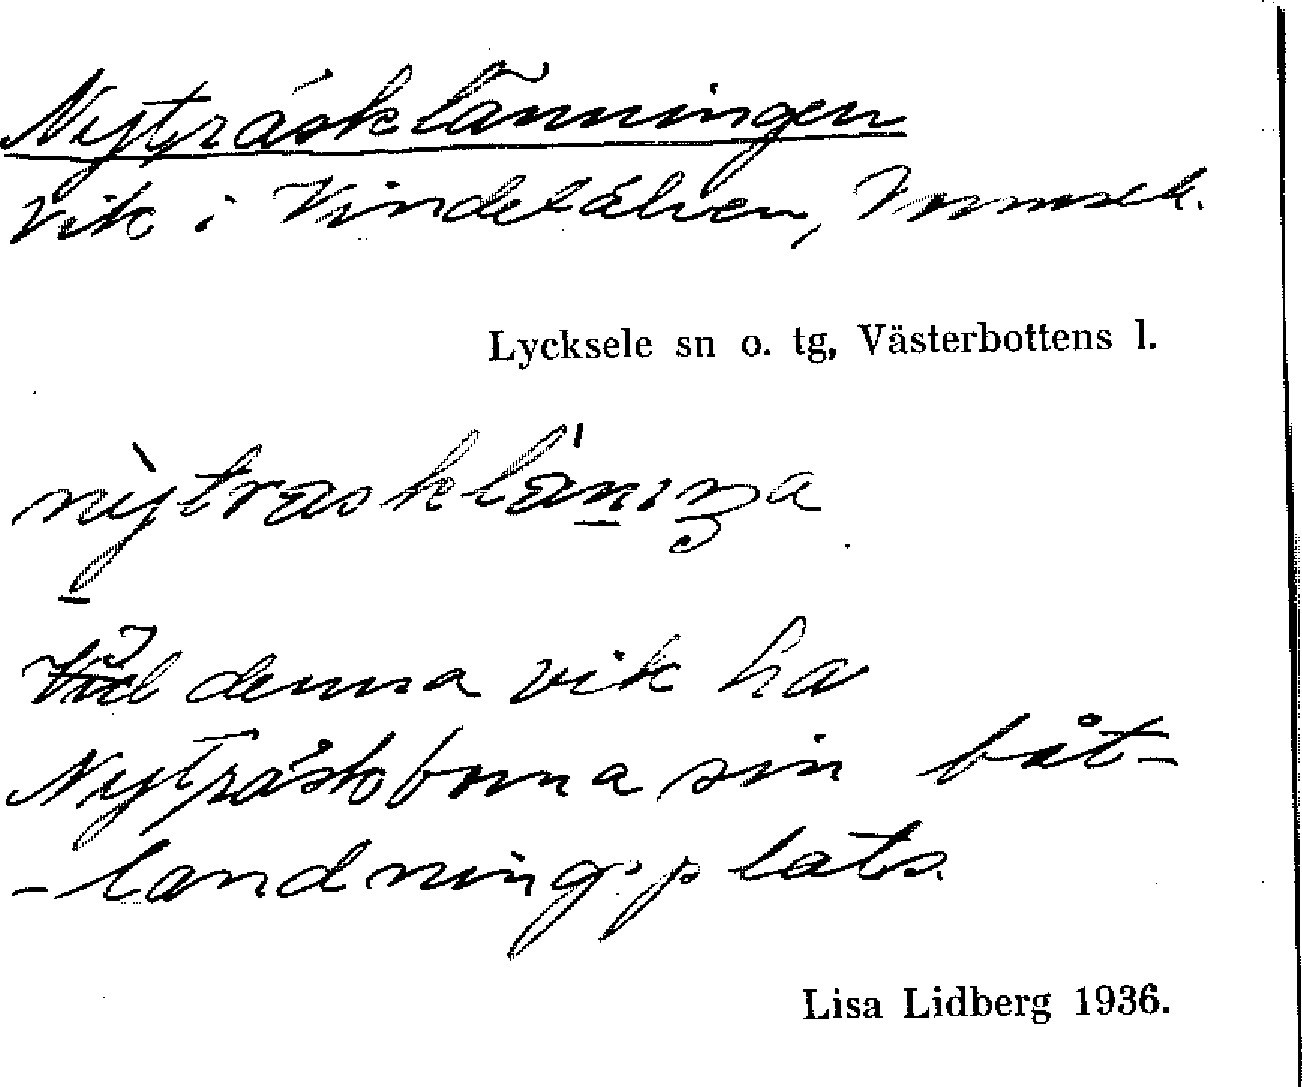 Nyträsklänningen
vik i Vindelälven,
Lycksele sn o. tg, Västerbottens l.
Vid denna vik ha
Nyträskborna sin båt-
-landningsplats.
Lisa Lidberg 1936.